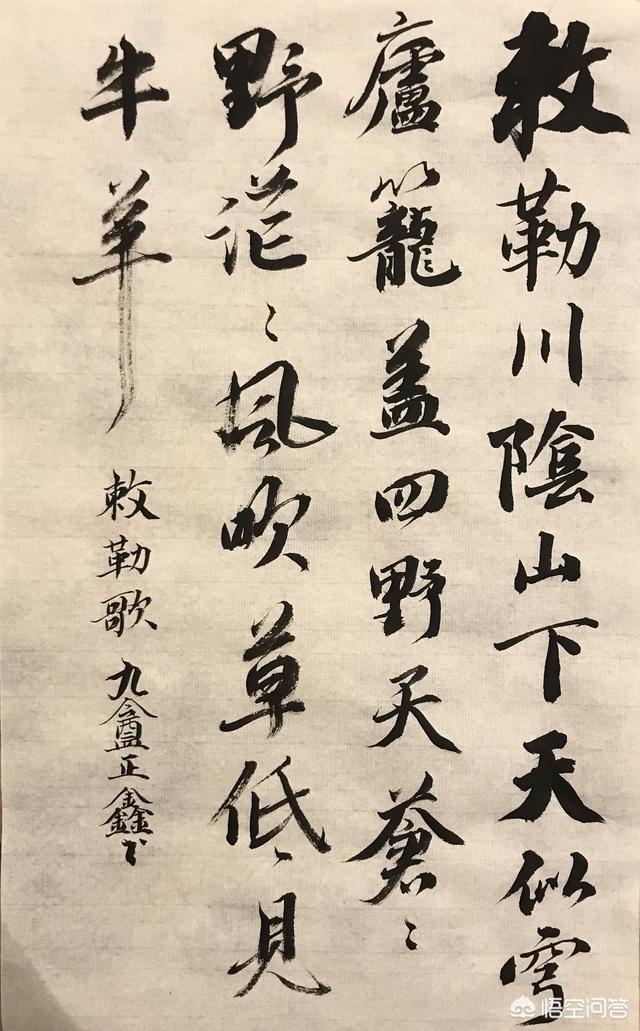 敕勒川陰山下天似穹
廬籠盖四野天蒼〻
野茫〻風吹草低見
牛羊
敕勒歌 九盦正鑫书
悟空问答